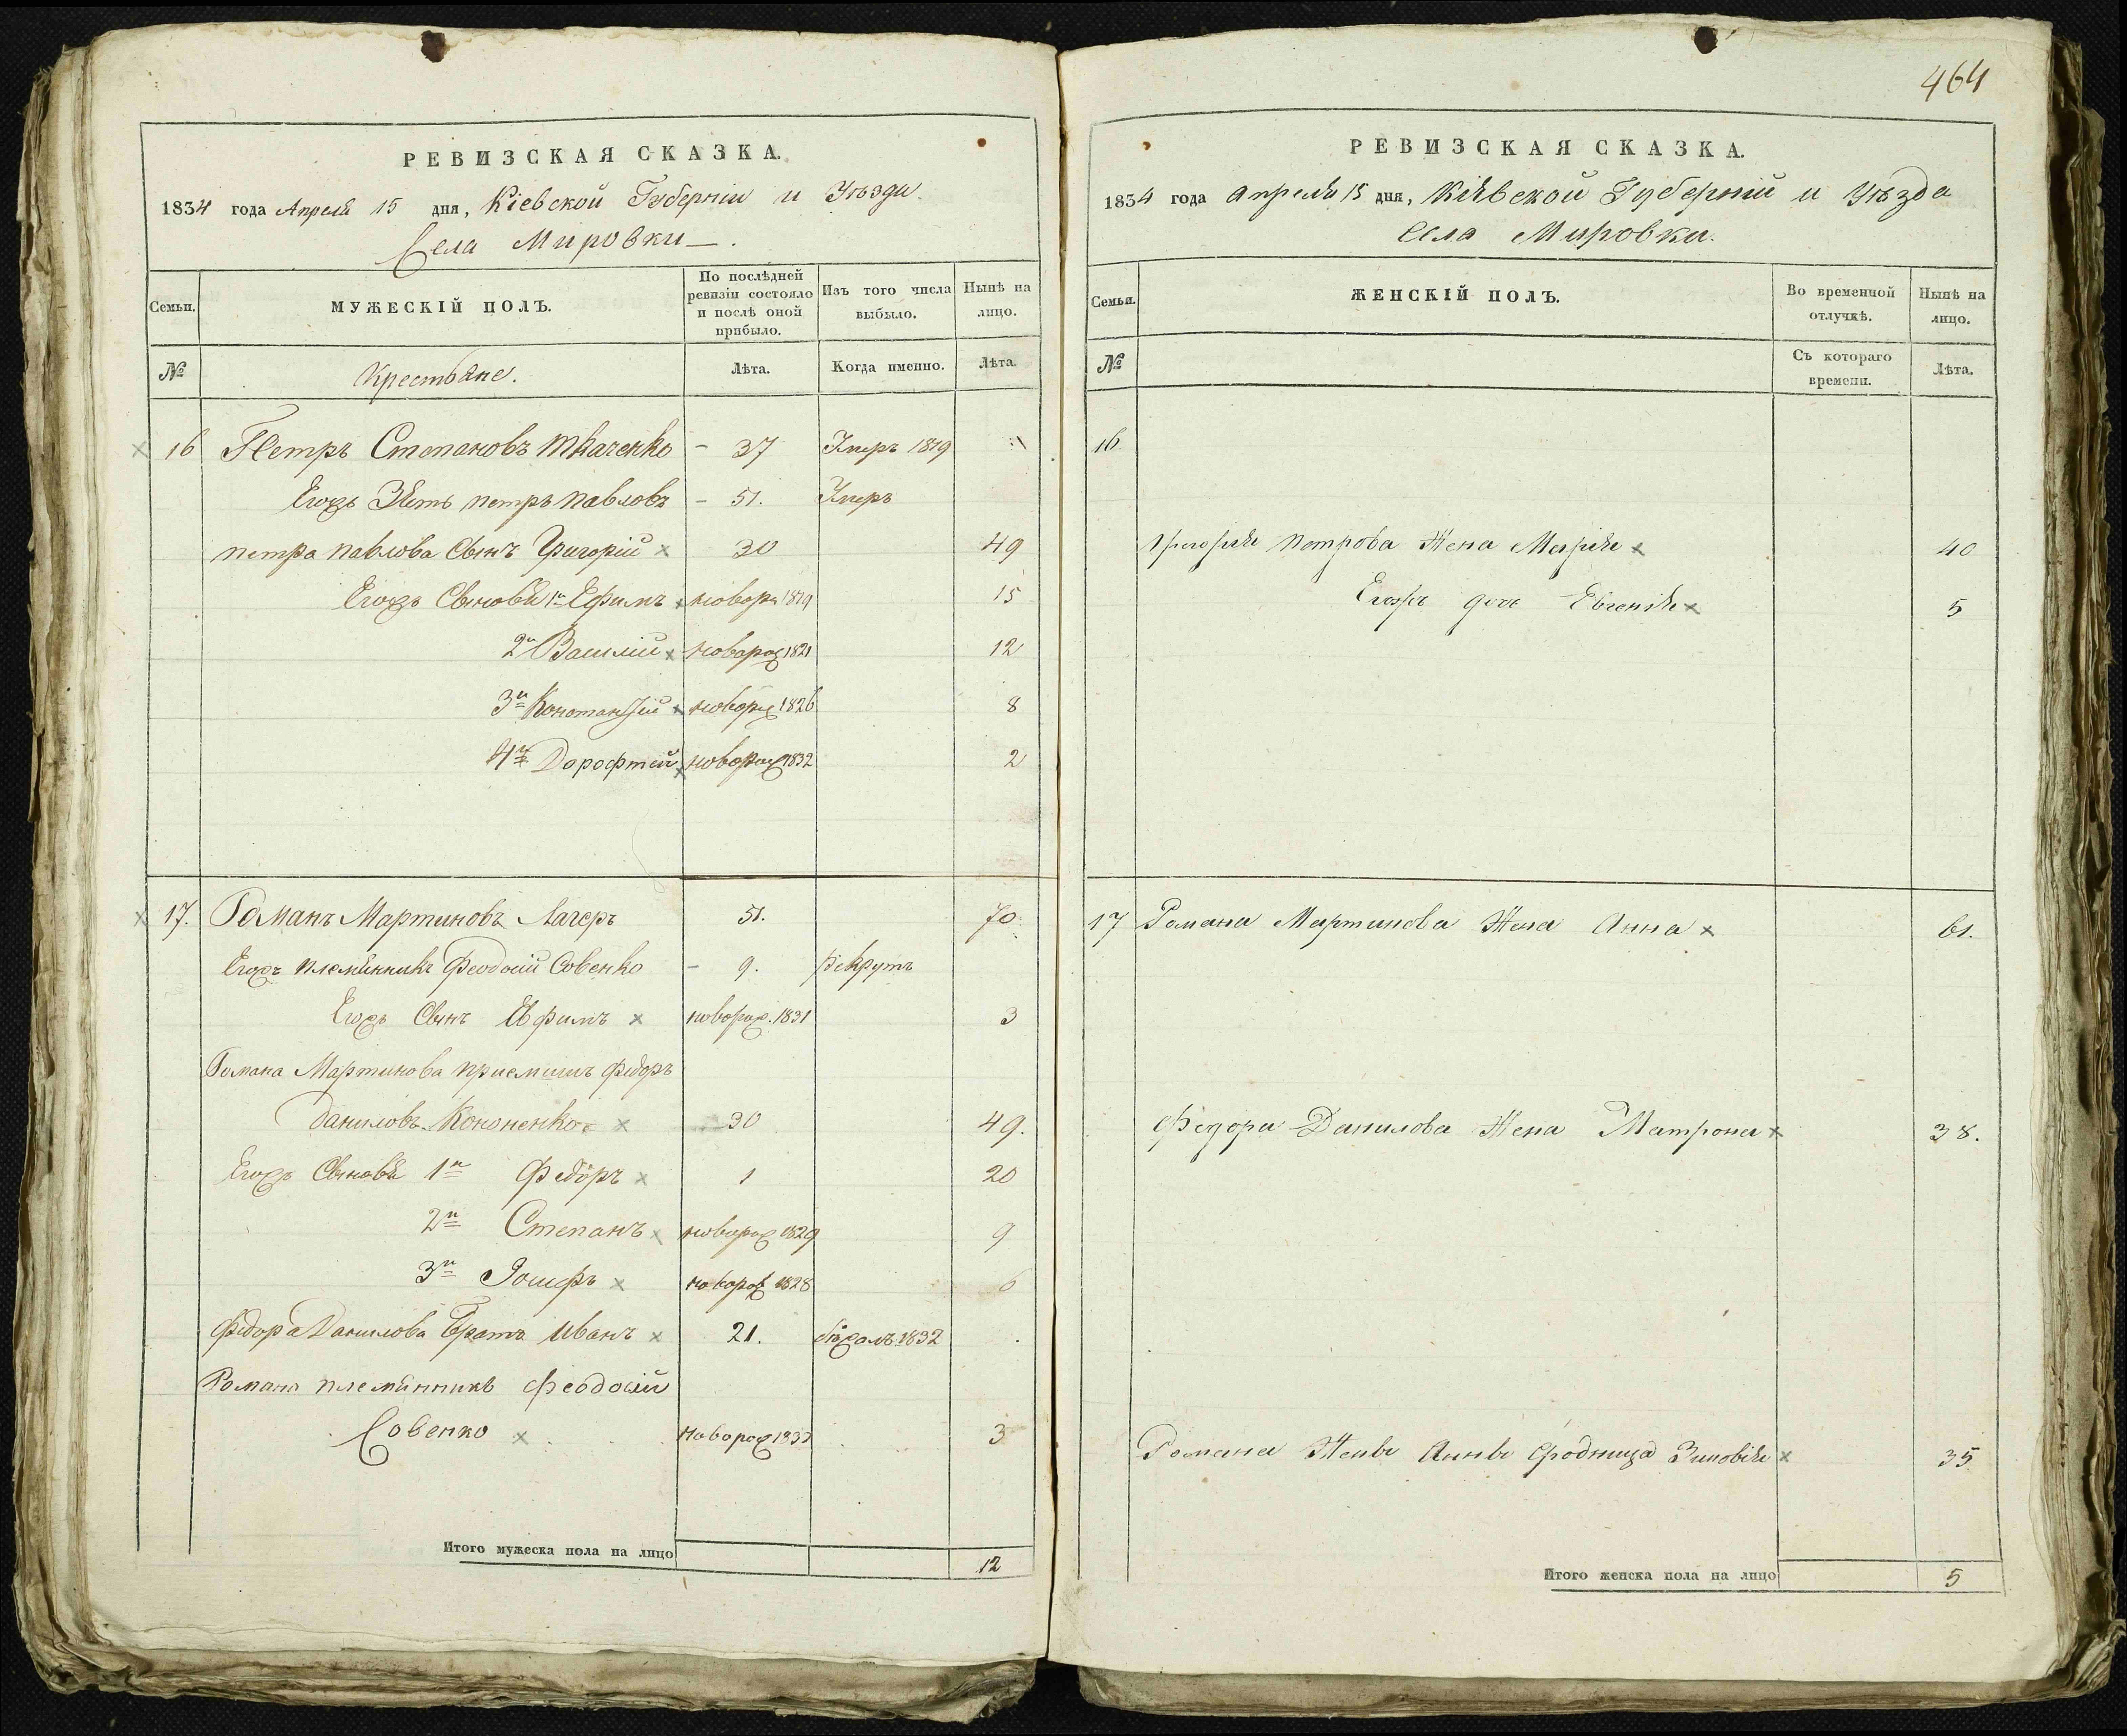 464
РЕВИЗСКАЯ СКАЗКА.
1834 года Апреля 15 дня, Кіевской Губерніи и Уѣзда
Села Мировки
Семьи. МУЖЕСКІЙ ПОЛЪ. По послѣдней ревизіи состояло и послѣ оной прибыло. Изъ того числа выбыло. Нынѣ на лицо.
№ Крестьяне. Лѣта. Когда именно. Лѣта.
16 Петръ Степановъ Ткаченко - 37 Умеръ 1819
Егожъ Зять петръ павловъ - 51. Умеръ
петра павлова Сынъ Григорій 30 49
Егожъ Сыновья 1й Ефимъ новорж 1819 15
2й Василій новорож 1821 12
3й новорж 1826 8
4й Дорофтей новорож 1832 2
17. Романъ Мартиновъ 51. 70
Егожъ племянникъ Феодосій Совенко - 9. рекрутъ
Егожъ Сынъ Ефимъ новорож. 1831 3
Романа Мартинова приемышъ Федоръ
Даниловъ Кононенко 30 49.
Егожъ Сыновья 1й Федоръ 1 20
2й Степанъ новорож 1829 9
3й Іосифъ новорож 1828 6
Федора Данилова Братъ Иванъ 21. бѣжалъ 1832
Романа племянникъ Феодосій
Совенко новорож 3
Итого мужеска пола на лицо 12
РЕВИЗСКАЯ СКАЗКА.
1834 года Апреля 15 дня, Кіевской Губерніи и Уѣзда
Села Мировки.
Семьи. ЖЕНСКІЙ ПОЛЪ. Во временной отлучкѣ. Нынѣ на лицо.
№ Съ котораго времени. Лѣта.
16
Григорія Петрова Жена Марія 40
Егожъ дочь Евгенія 5
17 Романа Мартинова Жена Анна 61.
Федора Данилова Жена Матрона 38.
Романа Жены Анны Сродница Зиновія 35
Итого женска пола на лицо 5